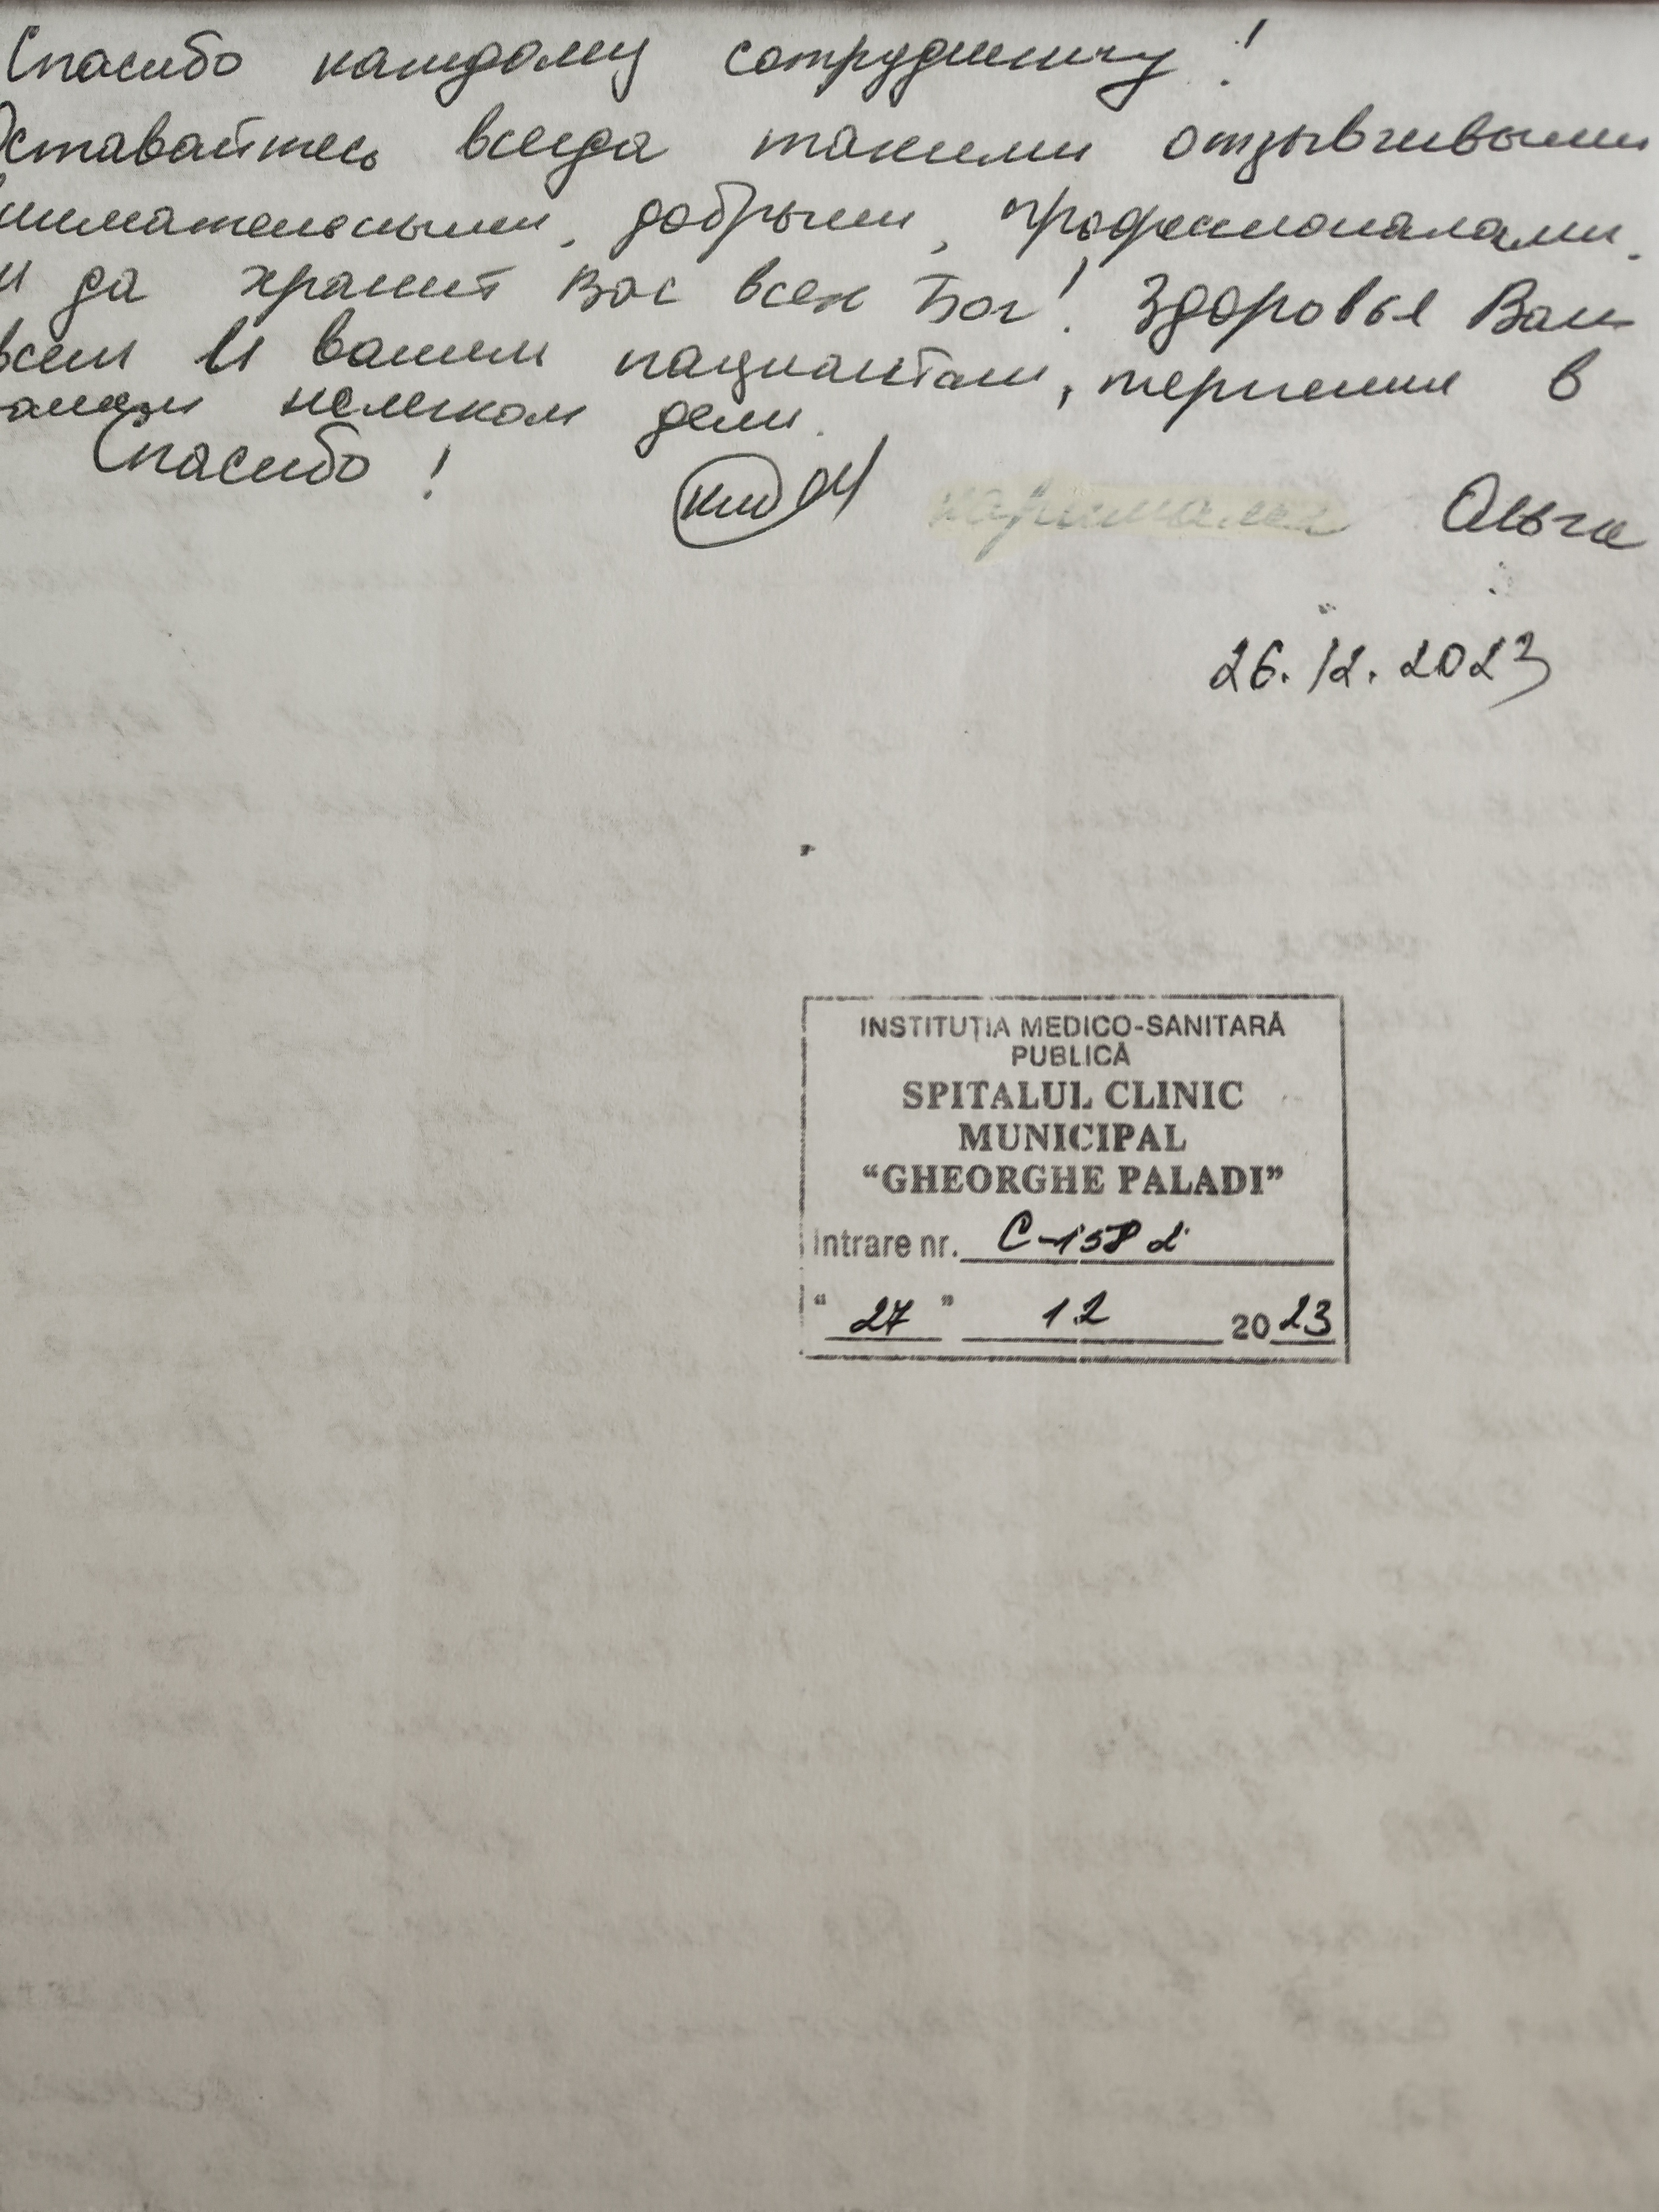 Спасибо каждому сотруднику!
Оставайтесь всегда такими отзывчивыми
внимательными, добрыми, професионалами.
и да хранит Вас всех Бог! Здоровья Вам
всем и вашим пациантам, терпения в
нелегком деле.
Спасибо!
Ольга
26.12.2023
INSTITUȚIA MEDICO-SANITARĂ
PUBLICĂ
SPITALUL CLINIC
MUNICIPAL
“GHEORGHE PALADI”
Intrare nr.
“ 27 ” 12 2023